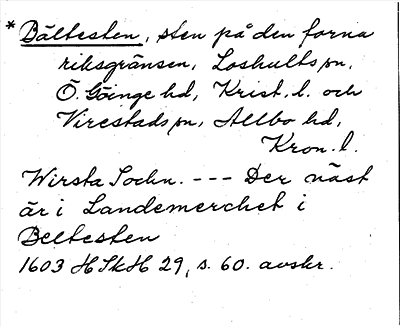 * Bältesten, sten på den forna
riksgränsen, Loshults sn,
Ö. Göinge hd, Krist. l. och
Virestads sn, Allbo hd,
Kron. l.
Wirsta Sochn. --- Der näst
är i Landemerchet i
Beltesten
1603 HSkH 29, s. 60. avskr.